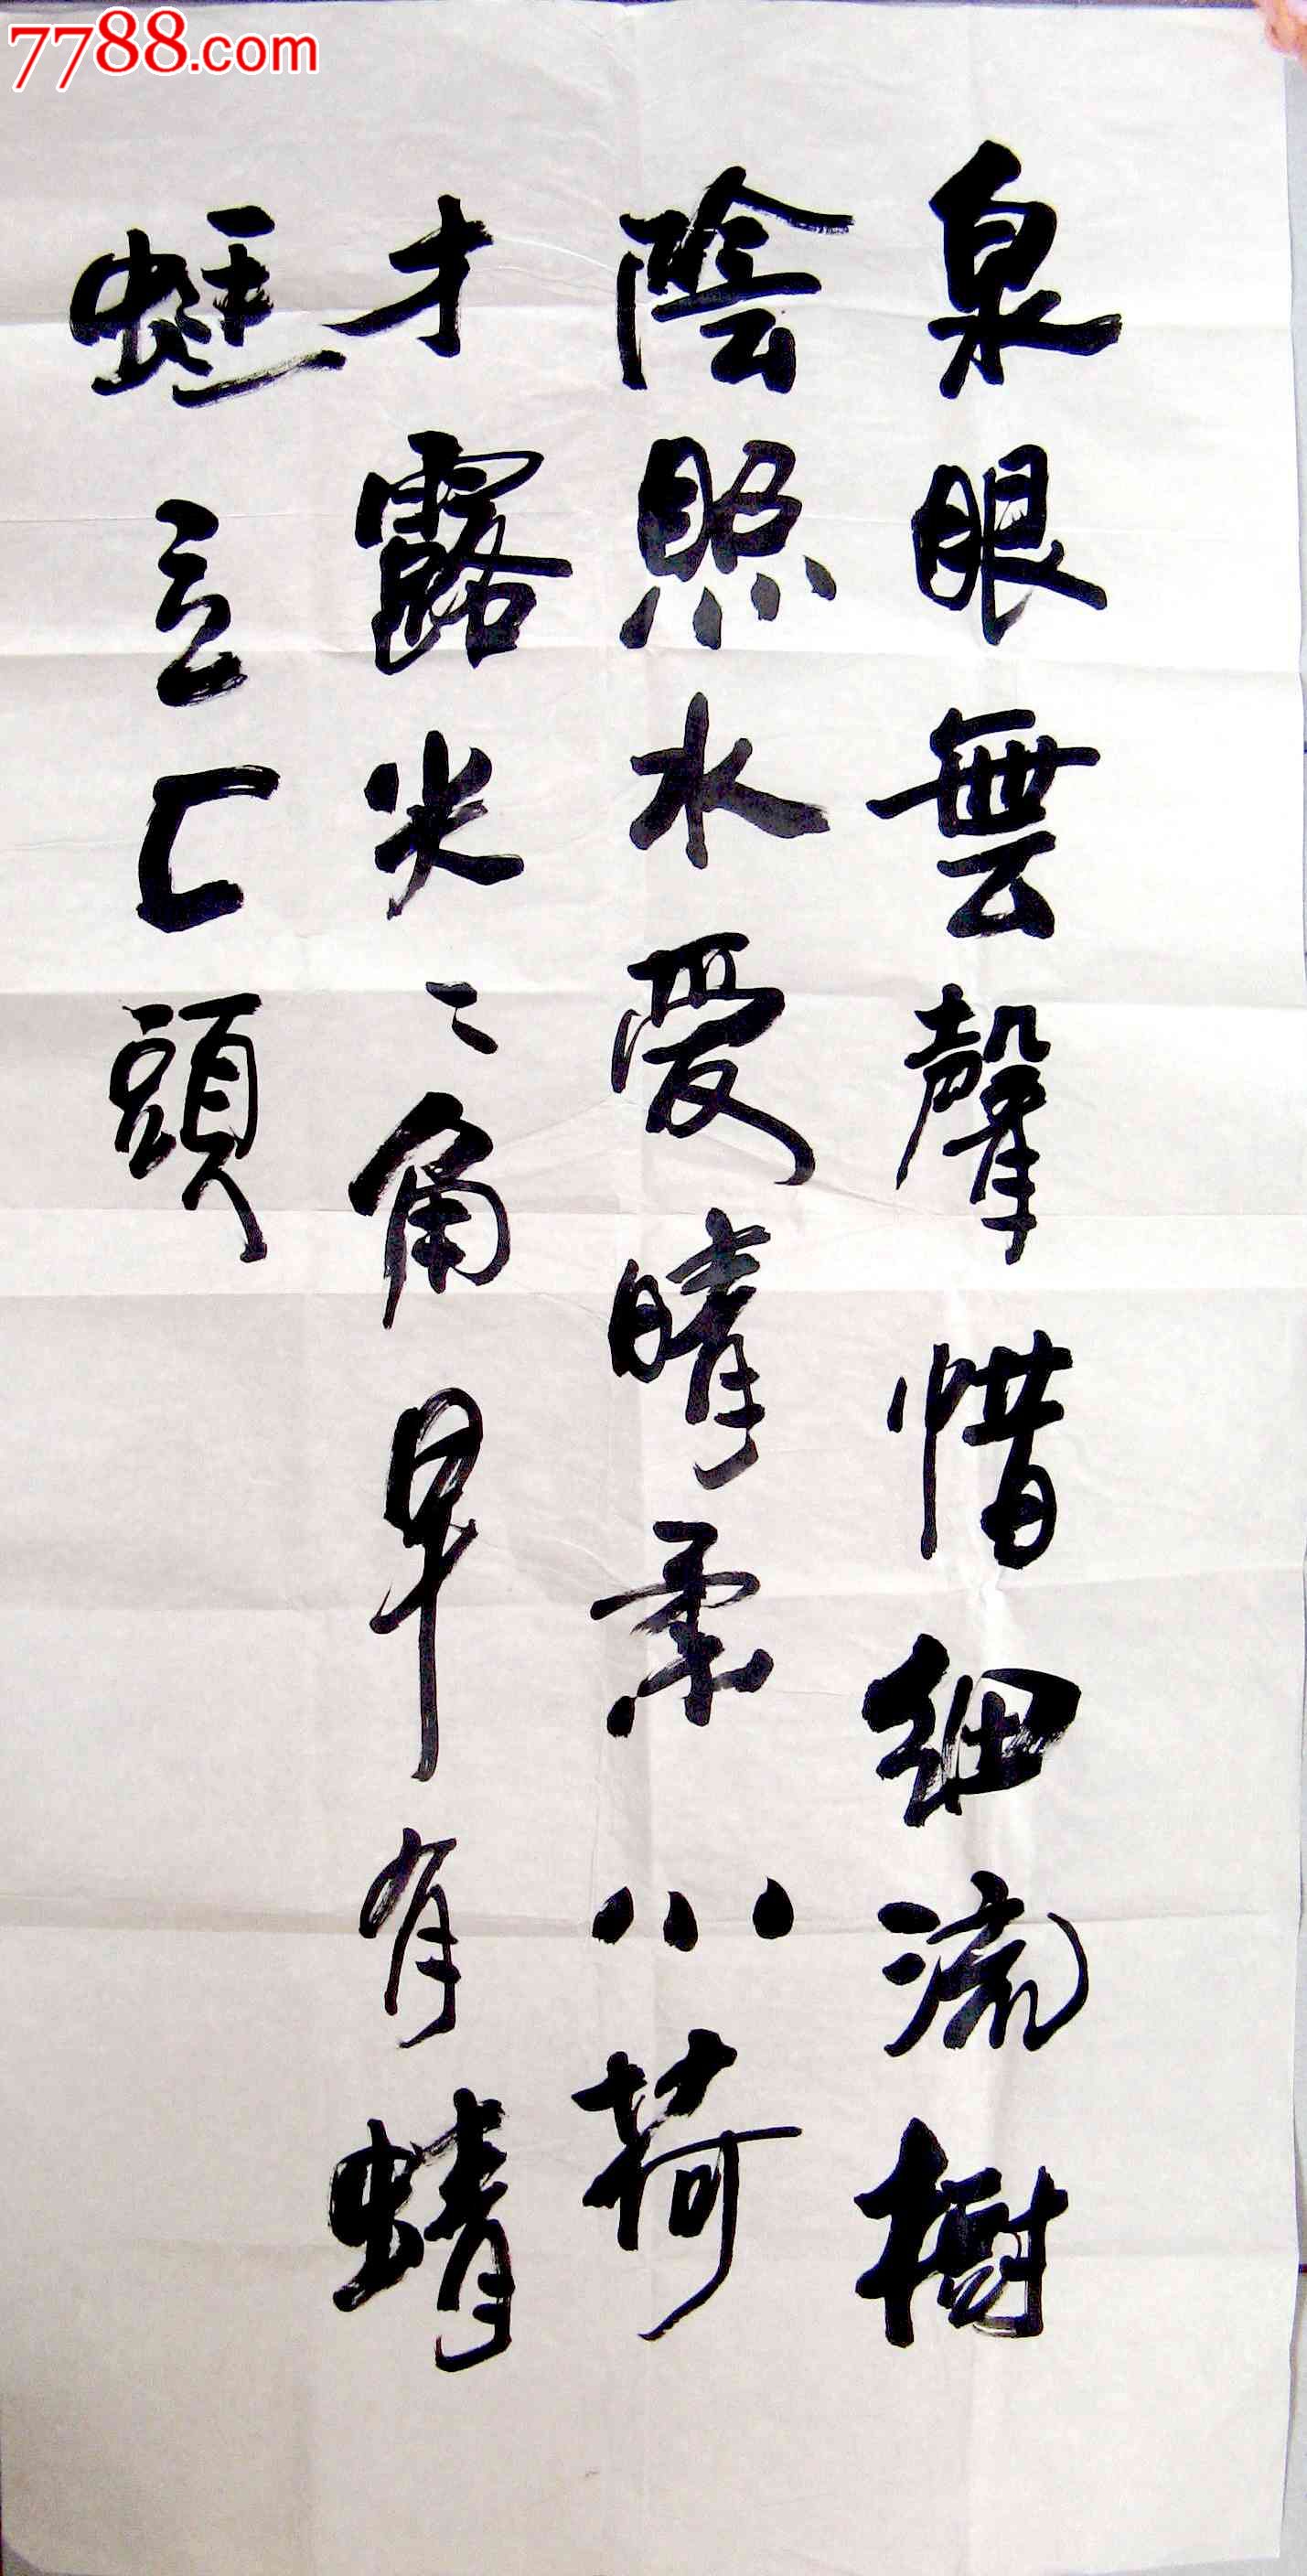 7788.com
泉眼無聲惜細流樹
陰照水愛晴柔小荷
才露尖々角早有蜻
蜓立上頭